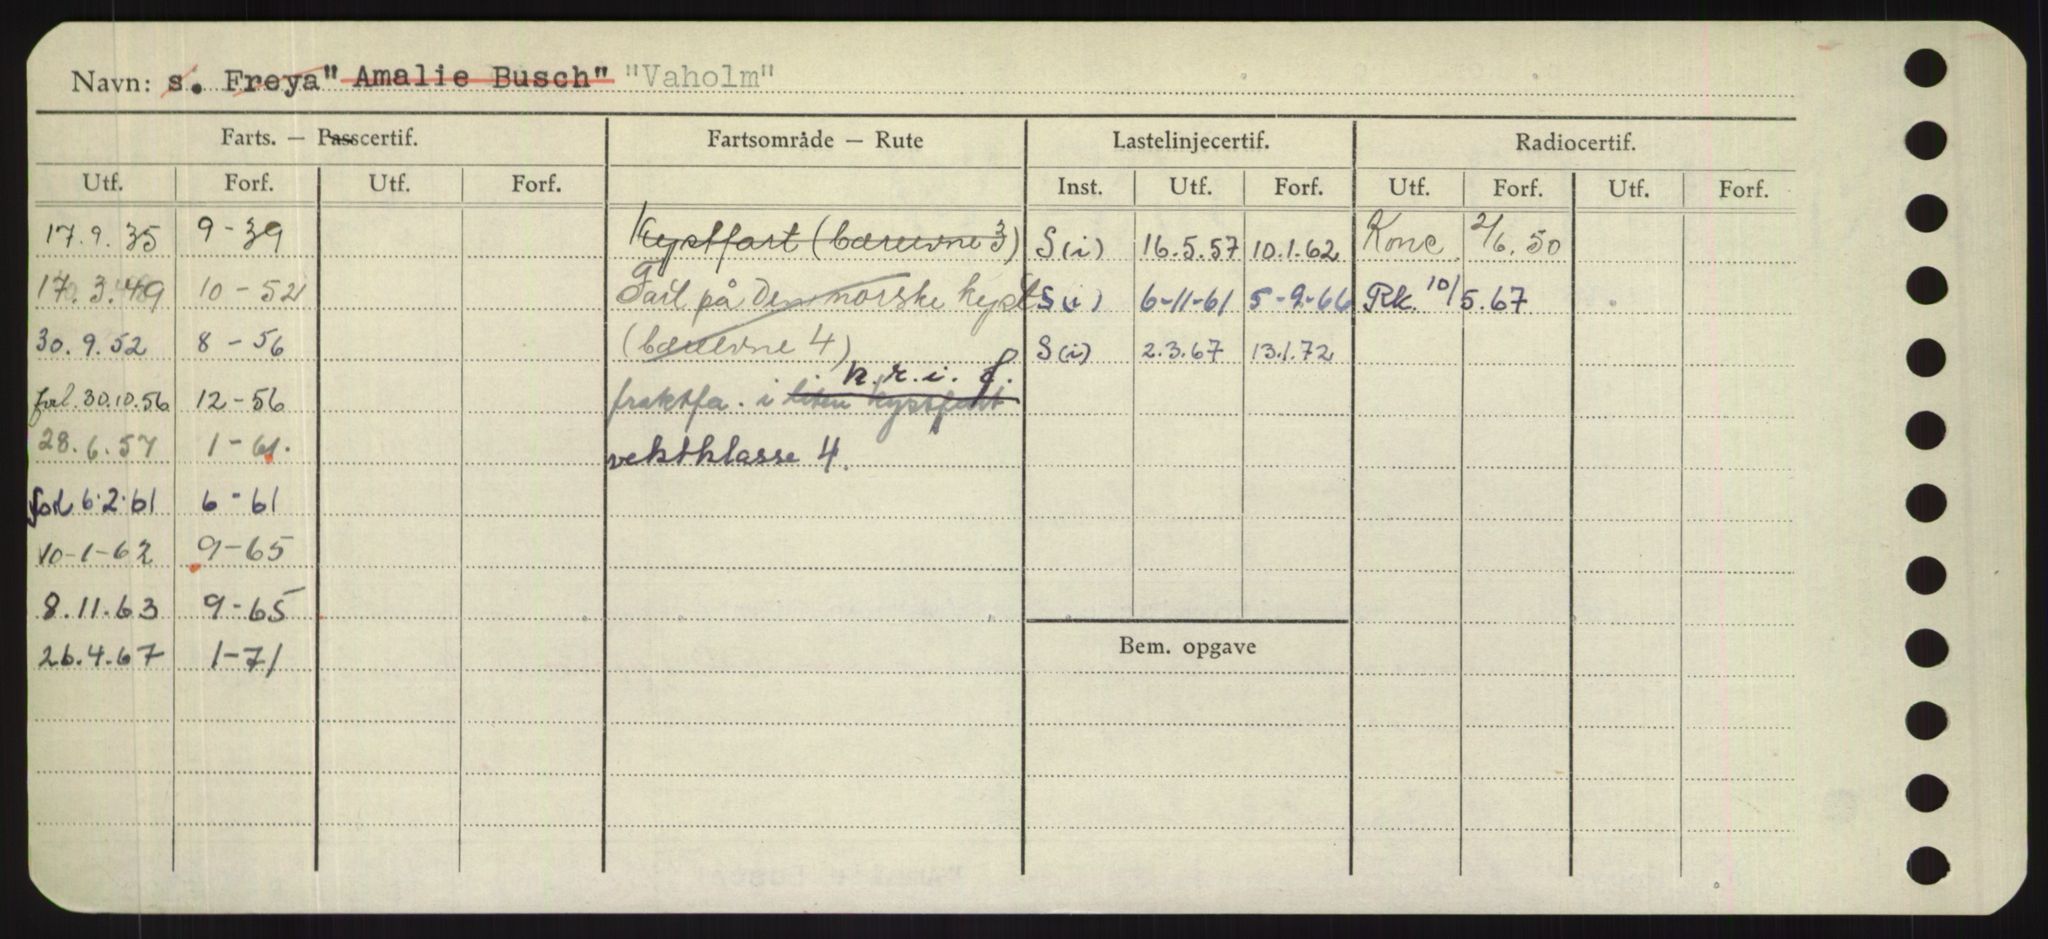 Navn: s. Freya" Amalie Busch" "Vaholm"
Farts. — Passcertif. Fartsområde — Rute Lastelinjecertif. Radiocertif.
Utf. Forf. Utf. Forf. Inst. Utf. Forf. Utf. Forf. Utf. Forf.
17.9.35 9-39 Kystfart (bæreevne 3) S(i) 16.5.57 10.1.62 Konc 2/6.50
17.3.49 10-52 Fart på Den norske kyst S(i) 6-11-61 5-9-66 Rk. 10/5.67
30.9.52 8-56 (bæreevne 4) S(i) 2.3.67 13.1.72
k.r.i.f.
30.10.56 12-56 fraktfa. i liten kystfart
28.6.57 1-61. vektklasse 4.
6.2.61 6-61
10-1-62 9-65
8.11.63 9-65
26.4.67 1-71
Bem. opgave